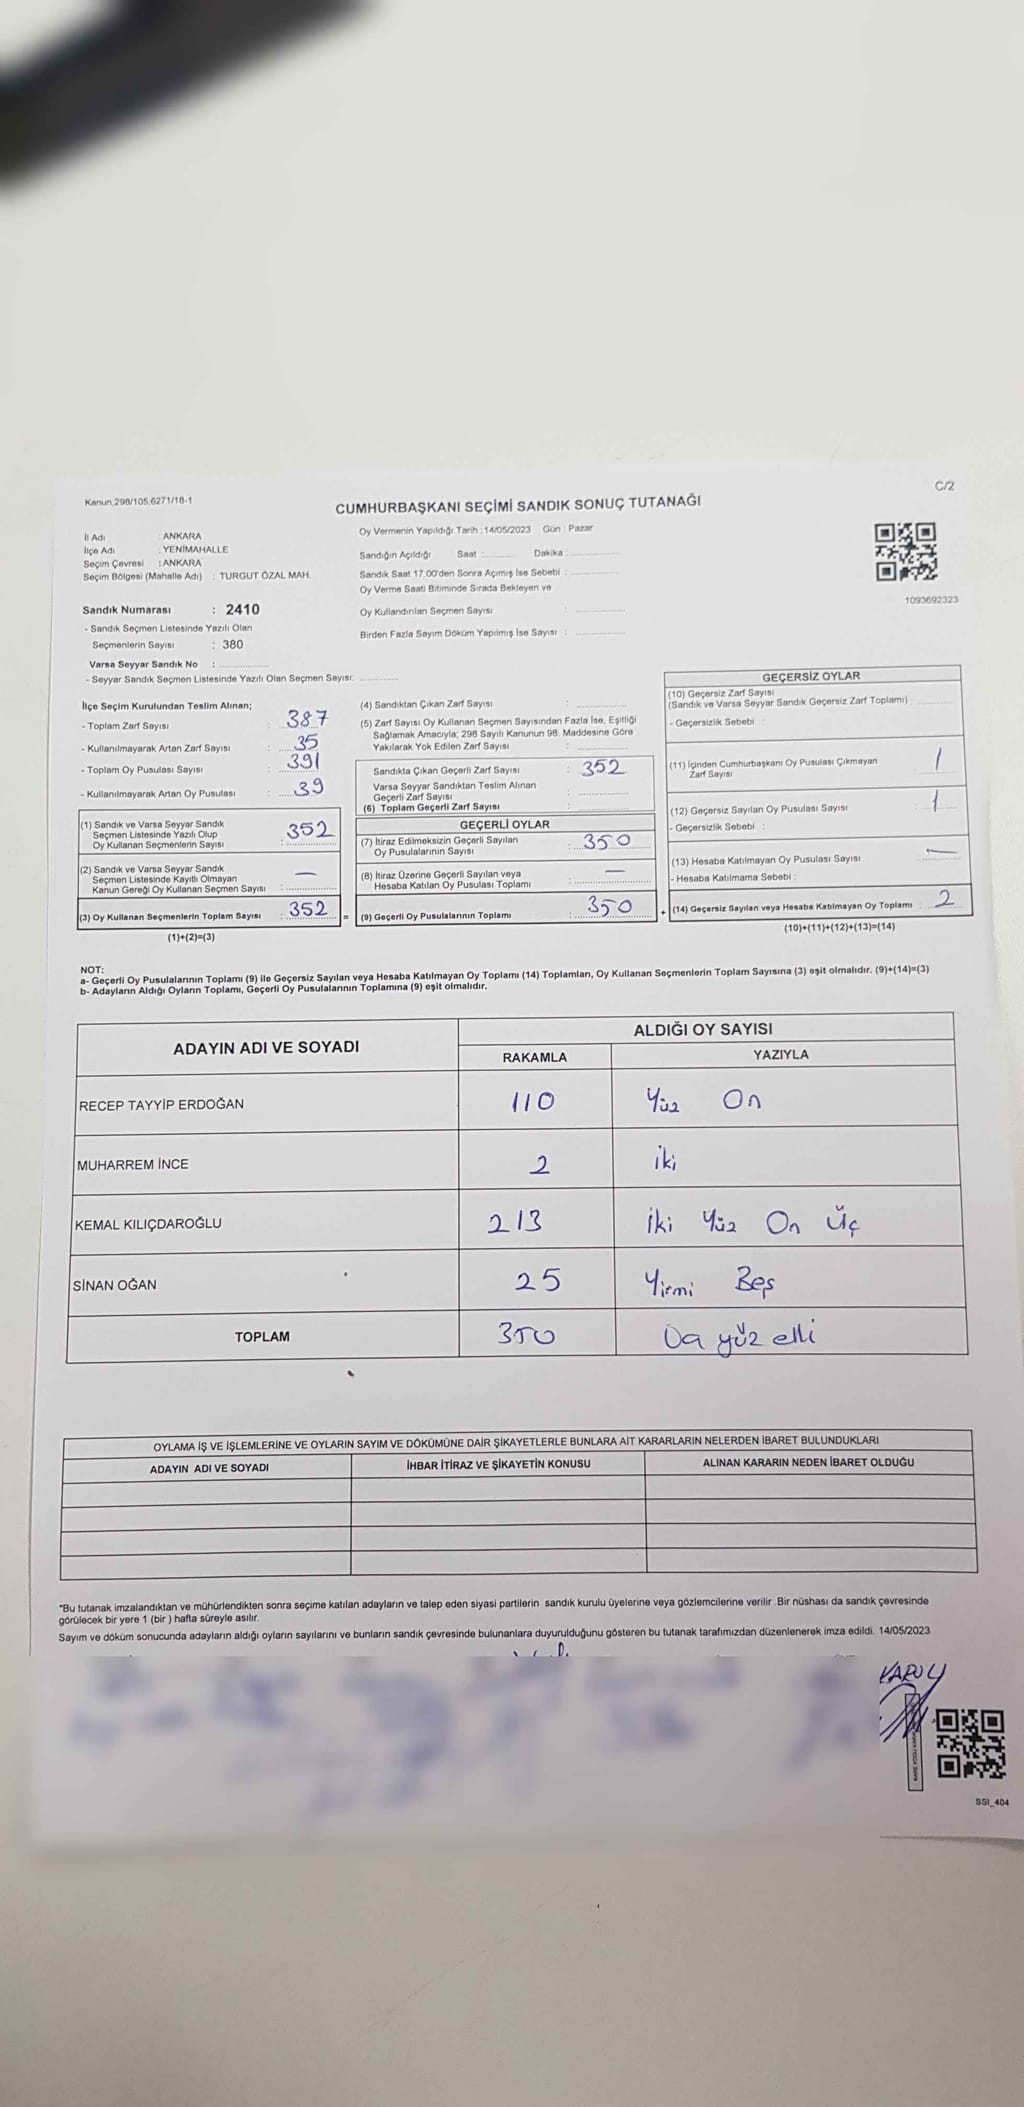 Kanun,298/105,6271/18-1
C/2
CUMHURBAŞKANI SEÇİMİ SANDIK SONUÇ TUTANAĞI
İl Adı : ANKARA
İlçe Adı : YENİMAHALLE
Seçim Çevresi : ANKARA
Seçim Bölgesi (Mahalle Adı) : TURGUT ÖZAL MAH.
Sandık Numarası : 2410
- Sandık Seçmen Listesinde Yazılı Olan
Seçmenlerin Sayısı : 380
Varsa Seyyar Sandık No : ..............
- Seyyar Sandık Seçmen Listesinde Yazılı Olan Seçmen Sayısı: ..............
Oy Vermenin Yapıldığı Tarih : 14/05/2023 Gün : Pazar
Sandığın Açıldığı Saat : .......... Dakika : ..............
Sandık Saat 17.00'den Sonra Açımış İse Sebebi : ..............
Oy Verme Saati Bitiminde Sırada Bekleyen ve
Oy Kullandırılan Seçmen Sayısı : ..............
Birden Fazla Sayım Döküm Yapılmış İse Sayısı : ..............
1093692323
İlçe Seçim Kurulundan Teslim Alınan;
- Toplam Zarf Sayısı : 387
- Kullanılmayarak Artan Zarf Sayısı : 35
- Toplam Oy Pusulası Sayısı : 391
- Kullanılmayarak Artan Oy Pusulası : 39
(1) Sandık ve Varsa Seyyar Sandık
Seçmen Listesinde Yazılı Olup
Oy Kullanan Seçmenlerin Sayısı : 352
(2) Sandık ve Varsa Seyyar Sandık
Seçmen Listesinde Kayıtlı Olmayan
Kanun Gereği Oy Kullanan Seçmen Sayısı : —
(3) Oy Kullanan Seçmenlerin Toplam Sayısı : 352 =
(1)+(2)=(3)
(4) Sandıktan Çıkan Zarf Sayısı : ..............
(5) Zarf Sayısı Oy Kullanan Seçmen Sayısından Fazla İse, Eşitliği
Sağlamak Amacıyla; 298 Sayılı Kanunun 98. Maddesine Göre
Yakılarak Yok Edilen Zarf Sayısı : ..............
Sandıkta Çıkan Geçerli Zarf Sayısı : 352
Varsa Seyyar Sandıktan Teslim Alınan
Geçerli Zarf Sayısı : ..............
(6) Toplam Geçerli Zarf Sayısı : ..............
GEÇERLİ OYLAR
(7) İtiraz Edilmeksizin Geçerli Sayılan
Oy Pusulalarının Sayısı : 350
(8) İtiraz Üzerine Geçerli Sayılan veya
Hesaba Katılan Oy Pusulası Toplamı : —
(9) Geçerli Oy Pusulalarının Toplamı : 350 +
GEÇERSİZ OYLAR
(10) Geçersiz Zarf Sayısı
(Sandık ve Varsa Seyyar Sandık Geçersiz Zarf Toplamı) : ..............
- Geçersizlik Sebebi :
(11) İçinden Cumhurbaşkanı Oy Pusulası Çıkmayan
Zarf Sayısı : 1
(12) Geçersiz Sayılan Oy Pusulası Sayısı : 1
- Geçersizlik Sebebi :
(13) Hesaba Katılmayan Oy Pusulası Sayısı : —
- Hesaba Katılmama Sebebi :
(14) Geçersiz Sayılan veya Hesaba Katılmayan Oy Toplamı : 2
(10)+(11)+(12)+(13)=(14)
NOT:
a- Geçerli Oy Pusulalarının Toplamı (9) ile Geçersiz Sayılan veya Hesaba Katılmayan Oy Toplamı (14) Toplamları, Oy Kullanan Seçmenlerin Toplam Sayısına (3) eşit olmalıdır. (9)+(14)=(3)
b- Adayların Aldığı Oyların Toplamı, Geçerli Oy Pusulalarının Toplamına (9) eşit olmalıdır.
ADAYIN ADI VE SOYADI ALDIĞI OY SAYISI
RAKAMLA YAZIYLA
RECEP TAYYİP ERDOĞAN 110 Yüz On
MUHARREM İNCE 2 iki
KEMAL KILIÇDAROĞLU 213 İki Yüz On Üç
SİNAN OĞAN 25 Yirmi Beş
TOPLAM 350 yüz elli
OYLAMA İŞ VE İŞLEMLERİNE VE OYLARIN SAYIM VE DÖKÜMÜNE DAİR ŞİKAYETLERLE BUNLARA AİT KARARLARIN NELERDEN İBARET BULUNDUKLARI
ADAYIN ADI VE SOYADI İHBAR İTİRAZ VE ŞİKAYETİN KONUSU ALINAN KARARIN NEDEN İBARET OLDUĞU
"Bu tutanak imzalandıktan ve mühürlendikten sonra seçime katılan adayların ve talep eden siyasi partilerin sandık kurulu üyelerine veya gözlemcilerine verilir .Bir nüshası da sandık çevresinde
görülecek bir yere 1 (bir ) hafta süreyle asılır.
Sayım ve döküm sonucunda adayların aldığı oyların sayılarını ve bunların sandık çevresinde bulunanlara duyurulduğunu gösteren bu tutanak tarafımızdan düzenlenerek imza edildi. 14/05/2023
SSI_404